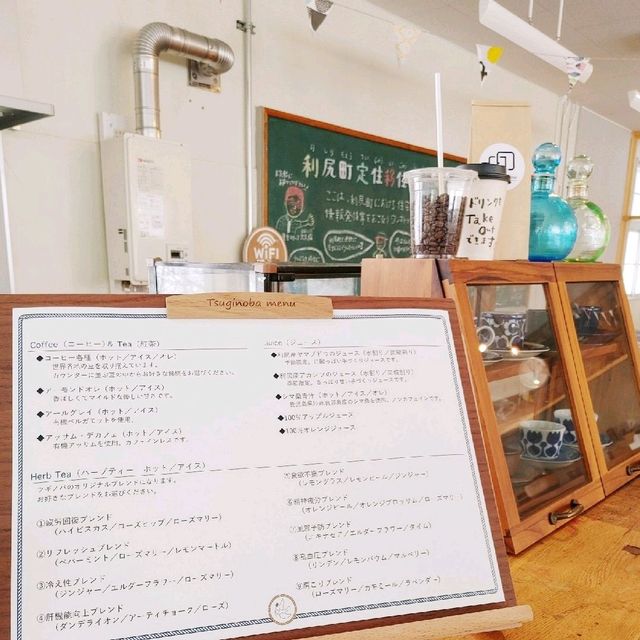 利尻町定住移
ここは、利尻町における
WiFi
ドリンクも
Take
Out
できます
Tsuginoba menu
Coffee (コーヒー) & Tea (紅茶)
◆コーヒー各種 (ホット/アイス/オレ)
世界各地の豆を取り揃えています。
カウンターに並ぶ豆の中からお好きな銘柄をお選びください。
◆アーモンドオレ (ホット/アイス)
香ばしくてマイルドな優しい甘さです。
◆アールグレイ (ホット/アイス)
有機ベルガモットを使用。
◆アッサム・デカフェ (ホット/アイス)
有機アッサムを使用。カフェインレスです。
Juice (ジュース)
◆100%アップルジュース
◆100%オレンジジュース
Herb Tea (ハーブティー ホット/アイス)
ツギノバのオリジナルブレンドになります。
お好きなブレンドをお選びください。
①疲労回復ブレンド
(ハイビスカス/ローズヒップ/ローズマリー)
②リフレッシュブレンド
(ペパーミント/ローズマリー/レモンマートル)
③冷え性ブレンド
(ジンジャー/エルダーフラワー/ローズマリー)
④肝機能向上ブレンド
(ダンデライオン/アーティチョーク/ローズ)
⑤食欲不振ブレンド
(レモングラス/レモンピール/ジンジャー)
⑥精神疲労ブレンド
(オレンジピール/オレンジブロッサム/ローズマリー)
⑦風邪予防ブレンド
(エキナセア/エルダーフラワー/タイム)
⑧高血圧ブレンド
(リンデン/レモンバウム/マルベリー)
⑨肩こりブレンド
(ローズマリー/カモミール/ラベンダー)